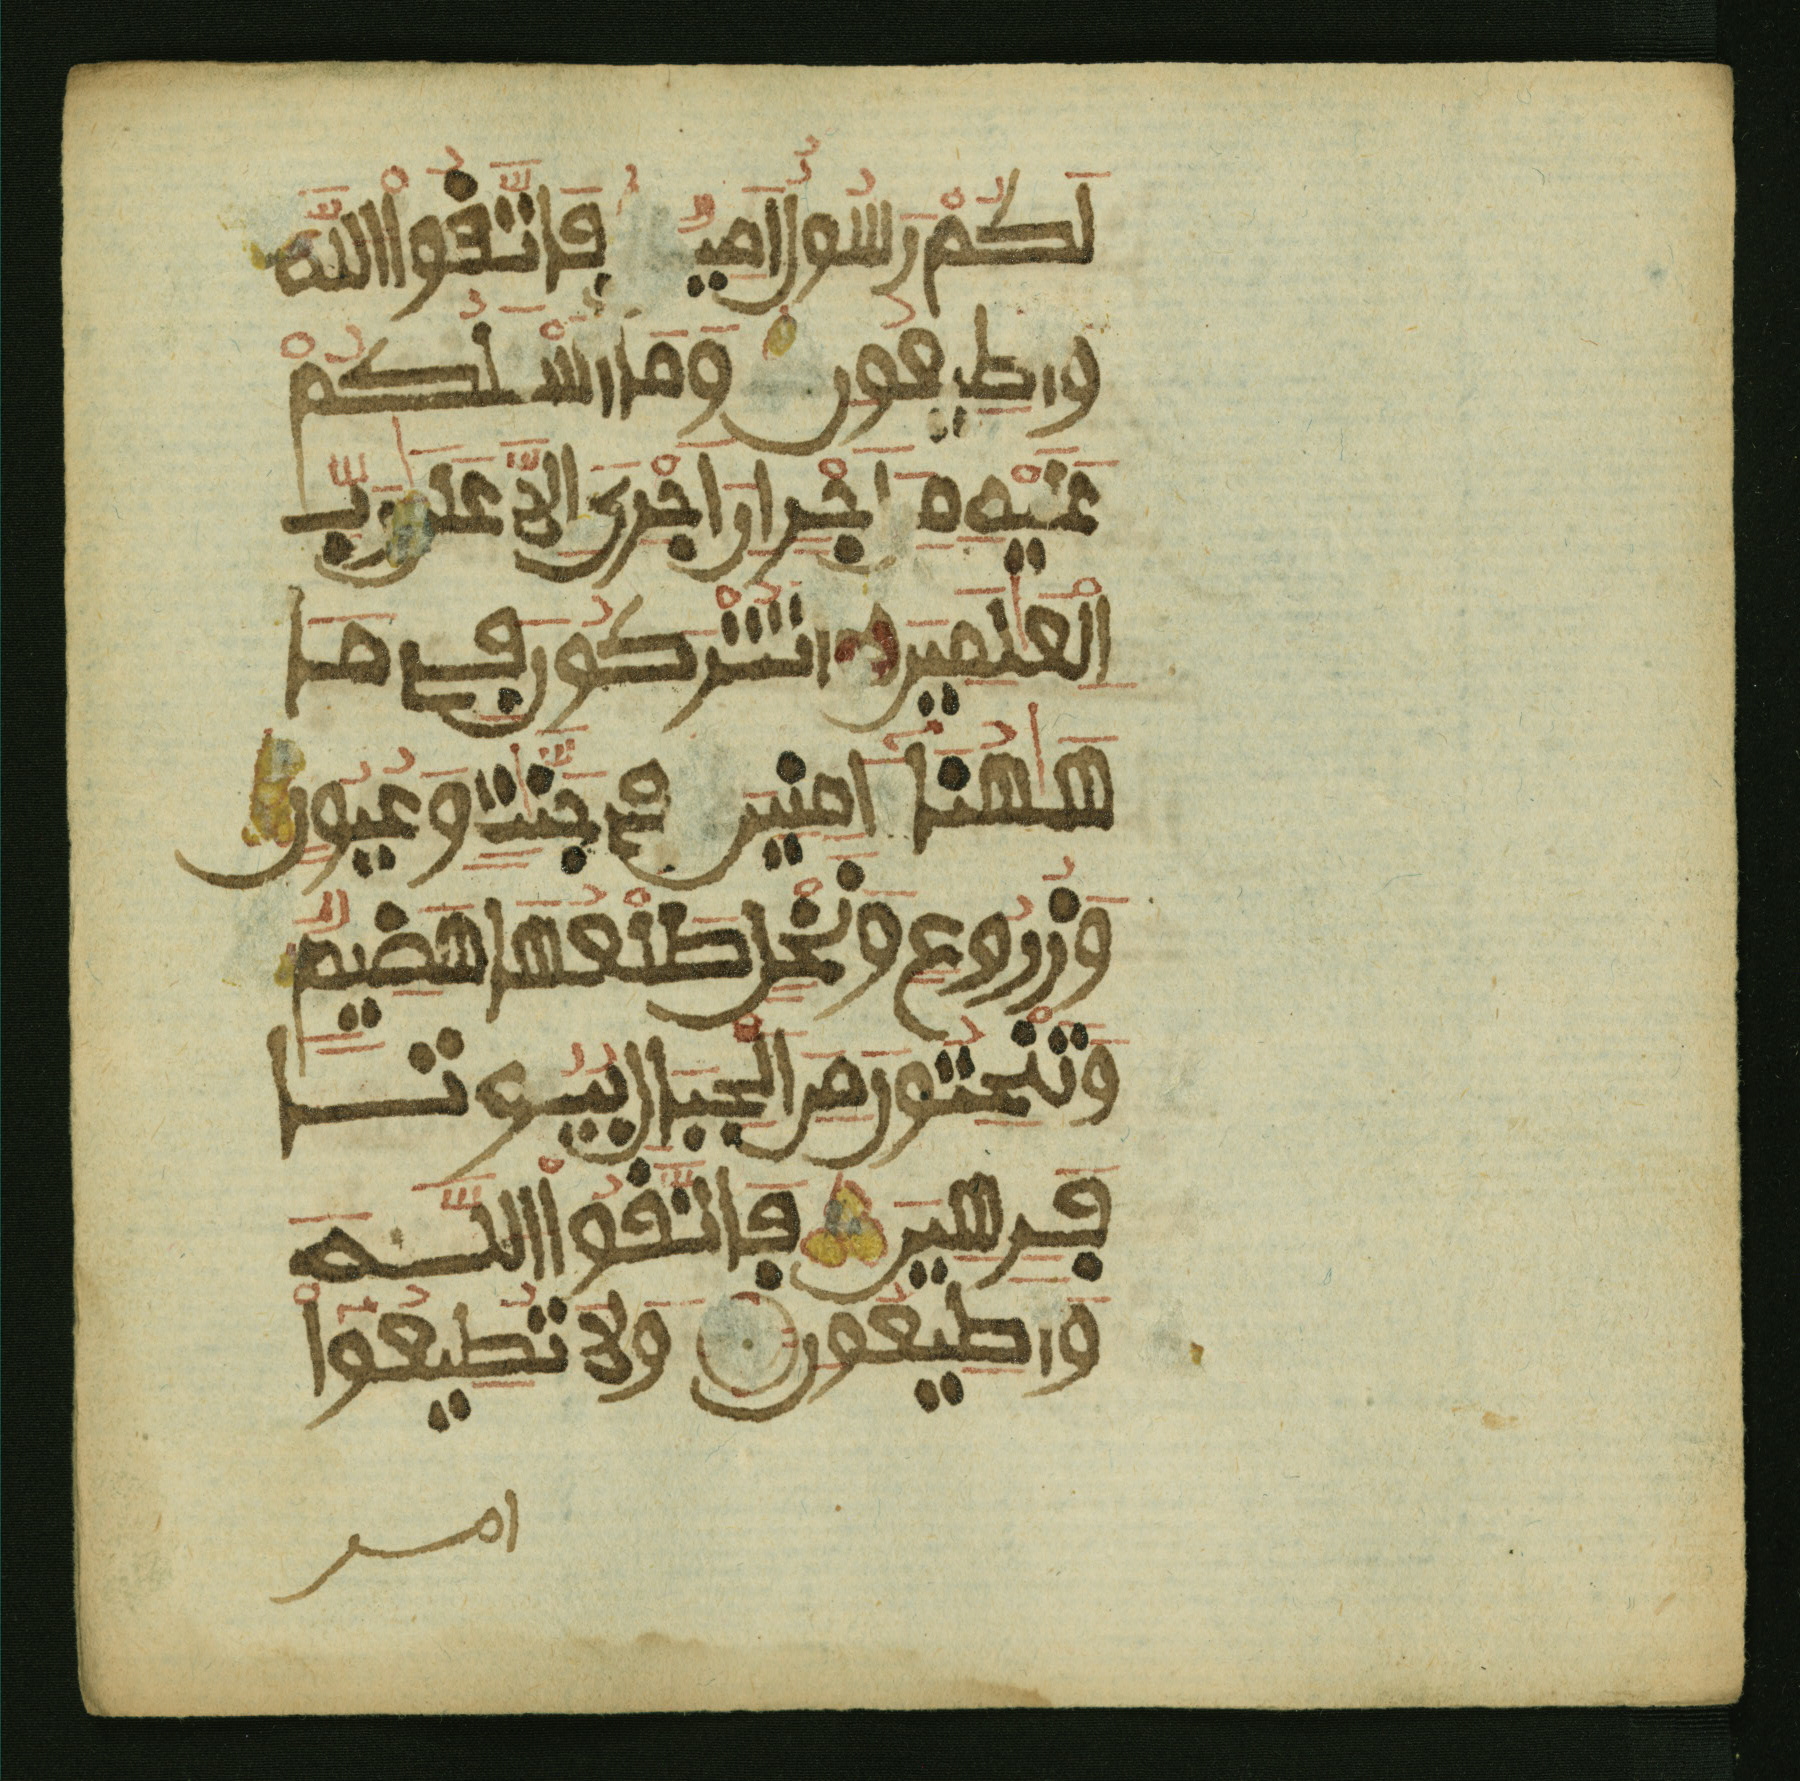 لَكُمْ رَسُولٌ اَمِينٌ فَاتَّقُوا اْللَّهَ
وَاَطِيعُونِ وَمَا اَسْـَٔلُكُمْ
عَلَيْهِ مِنَ اَجْرٍ اِنَ اَجْرِىَ اِلَّا عَلَىٰ رَبِّ
اْلْعَٰلَمِينَ اَتُتْرَكُونَ فِے مَا
هَٰهُنَا ءَامِنِينَ فِے جَنَّٰتٍ وَعُيُونٍ
وَزُرُوعٍ وَنَخْلٍ طَلْعُهَا هَضِيمٌ
وَتَنْحِتُونَ مِنَ اَلْجِبَالِ بُيُوتًا
فَرِهِينَ فَاتَّقُوا اْللَّهَ
وَاَطِيعُونِ وَلَا تُطِيعُوٓاْ
امر